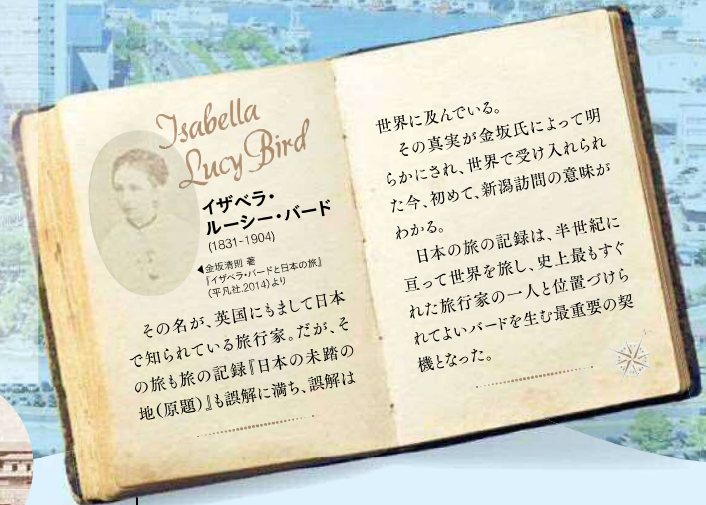 Isabella
Lucy Bird
イザベラ・
ルーシー・バード
(1831-1904)
◀金坂清則 著
『イザベラ・バードと日本の旅』
(平凡社.2014)より
その名が、英国にもまして日本
で知られている旅行家。だが、そ
の旅も旅の記録『日本の未踏の
地(原題)』も誤解に満ち、誤解は
世界に及んでいる。
その真実が金坂氏によって明
らかにされ、世界で受け入れられ
た今、初めて、新潟訪問の意味が
わかる。
日本の旅の記録は、半世紀に
亘って世界を旅し、史上最もすぐ
れた旅行家の一人と位置づけら
れてよいバードを生む最重要の契
機となった。